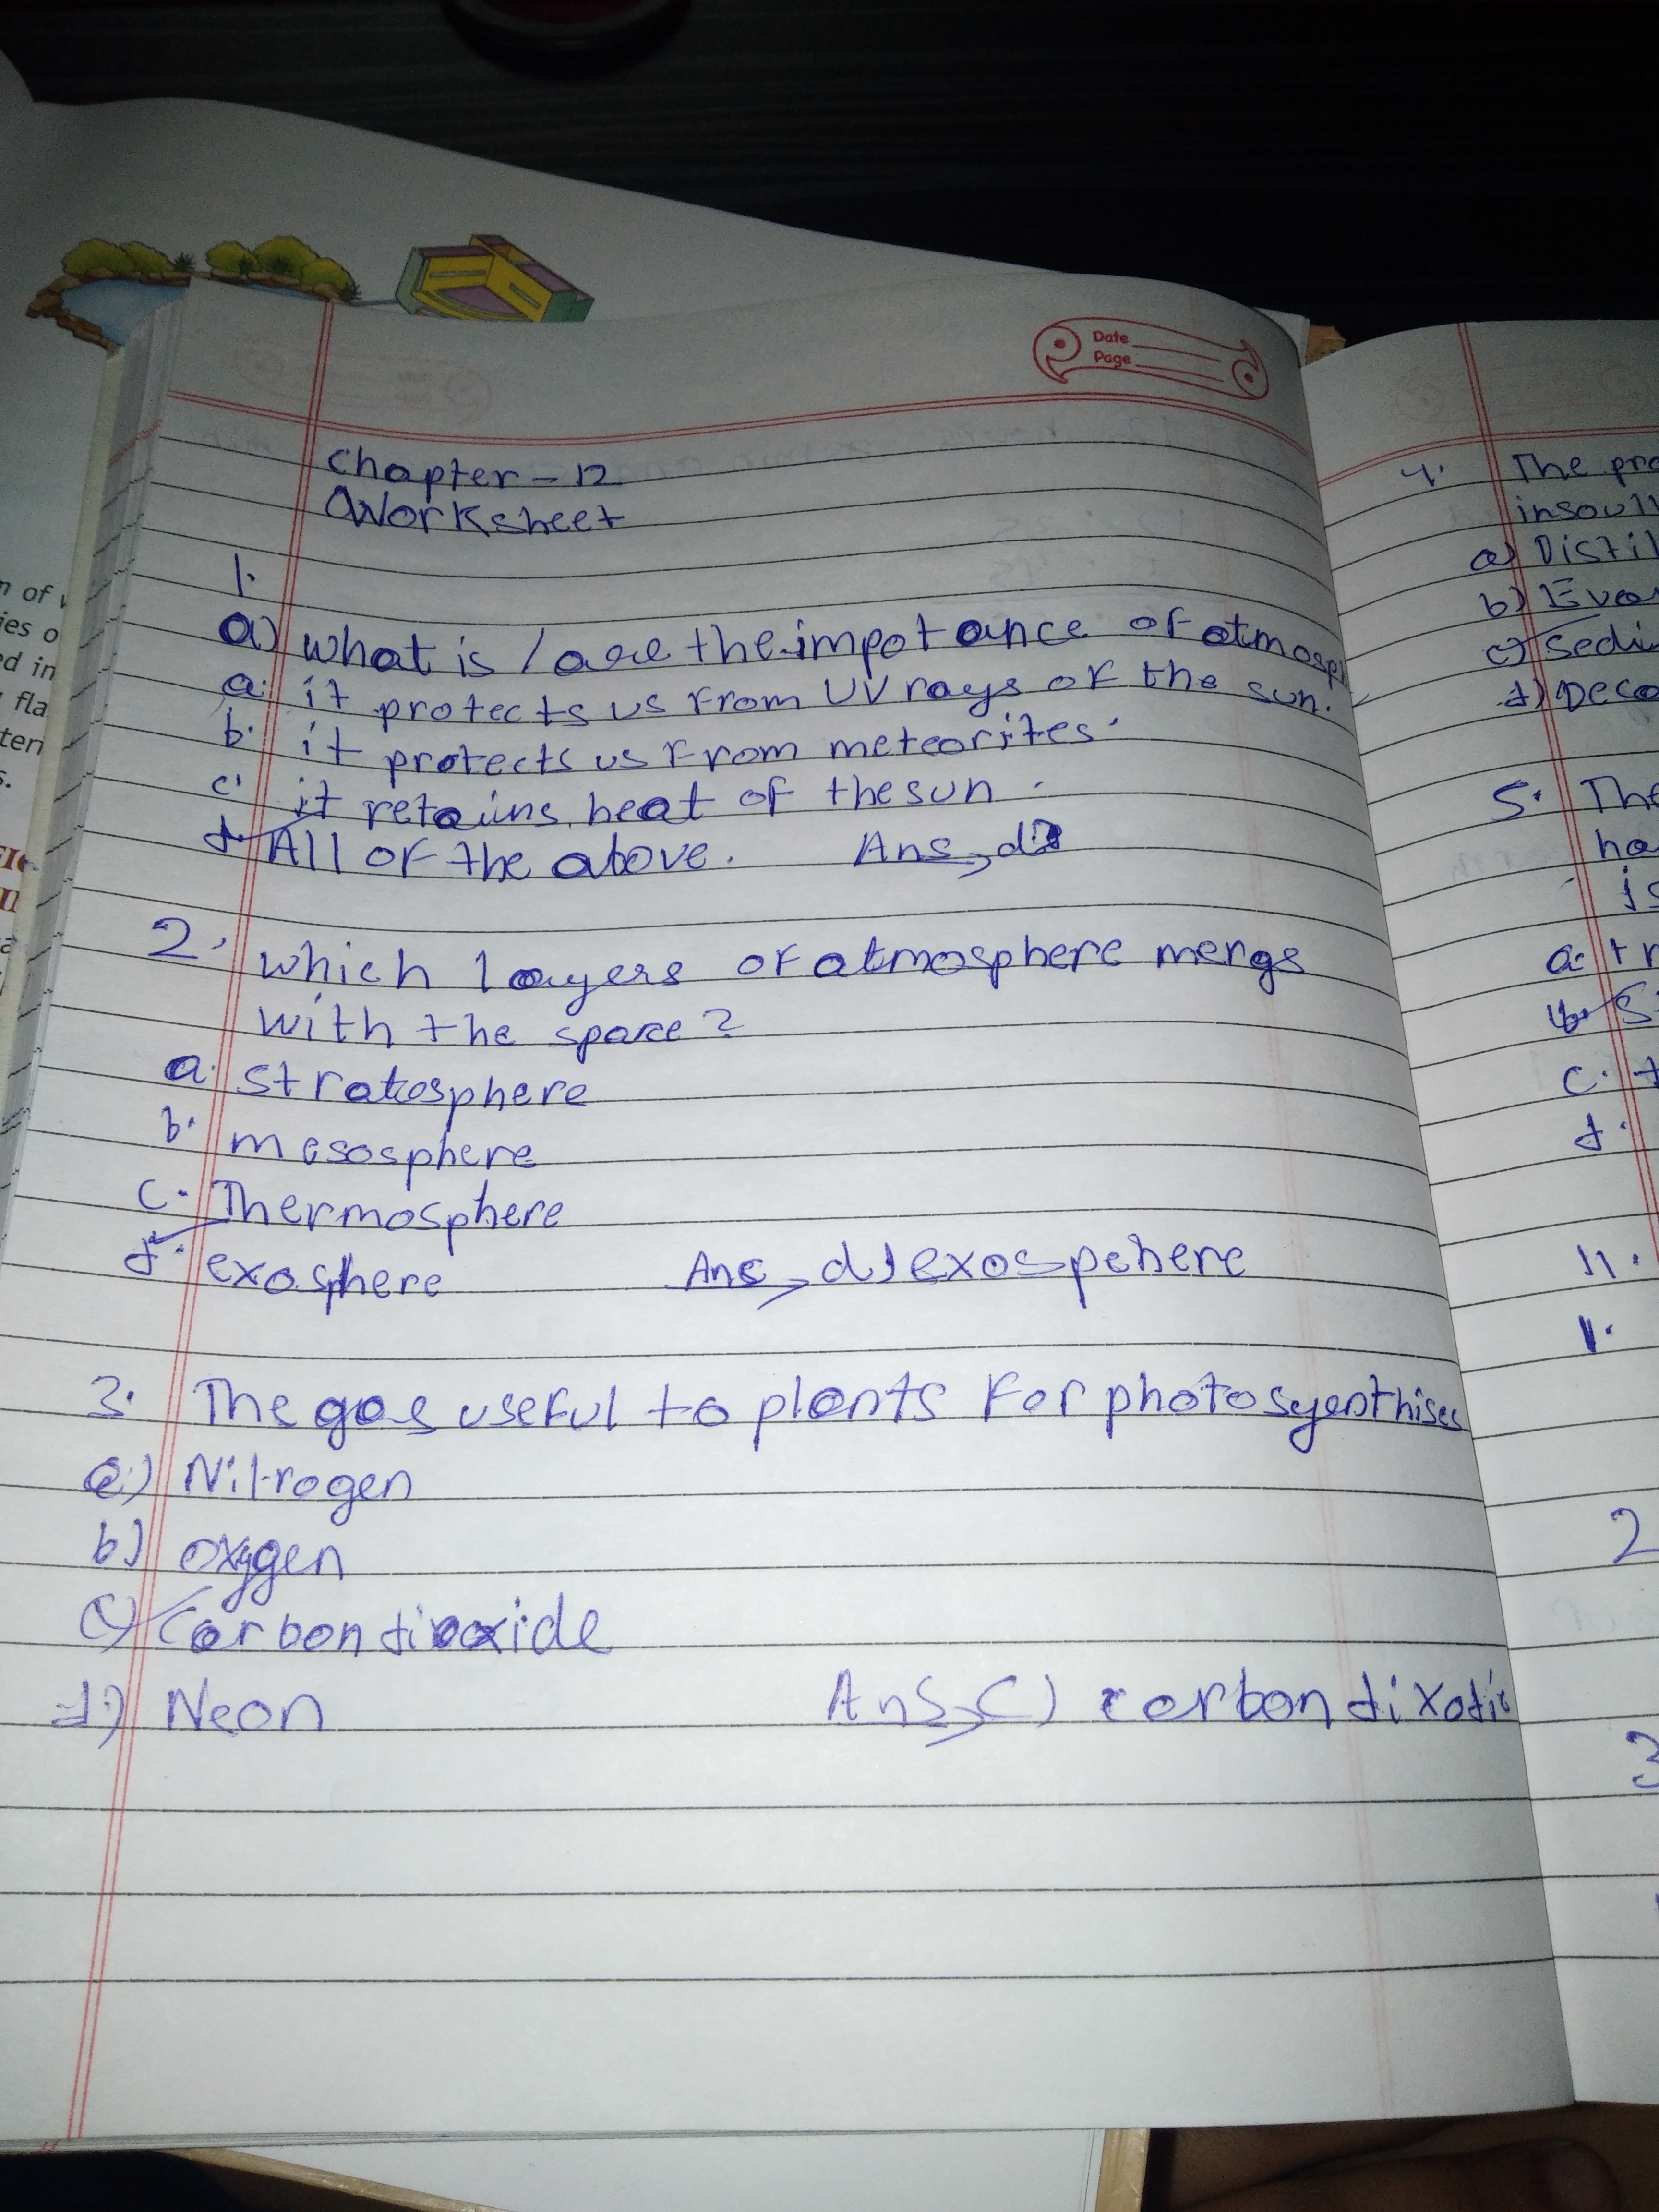 Date
Page
Chapter - 12
Worksheet
1.
a) what is / are the impotance of atmosp
a. it protects us from UV rays of the sun.
b. it protects us from meteorites.
c. it retains heat of the sun.
d. All of the above. Ans, d
2. which layers of atmosphere mergs
with the space?
a. stratosphere
b. mesosphere
c. Thermosphere
d. exosphere Ans, d) exospehere
3. The gas useful to plants for photosyenthises
a) Nitrogen
b) oxygen
c) Carbondioxide
d) Neon Ans, C) carbondixodi
4. The pro
insoull
a) Distil
b) Evap
c) Sedi
d) Deco
5. The
ha
is
a. tr
b. St
c. t
d.
11.
1.
2
3
n of
ies o
ed in
fla
ten
s.